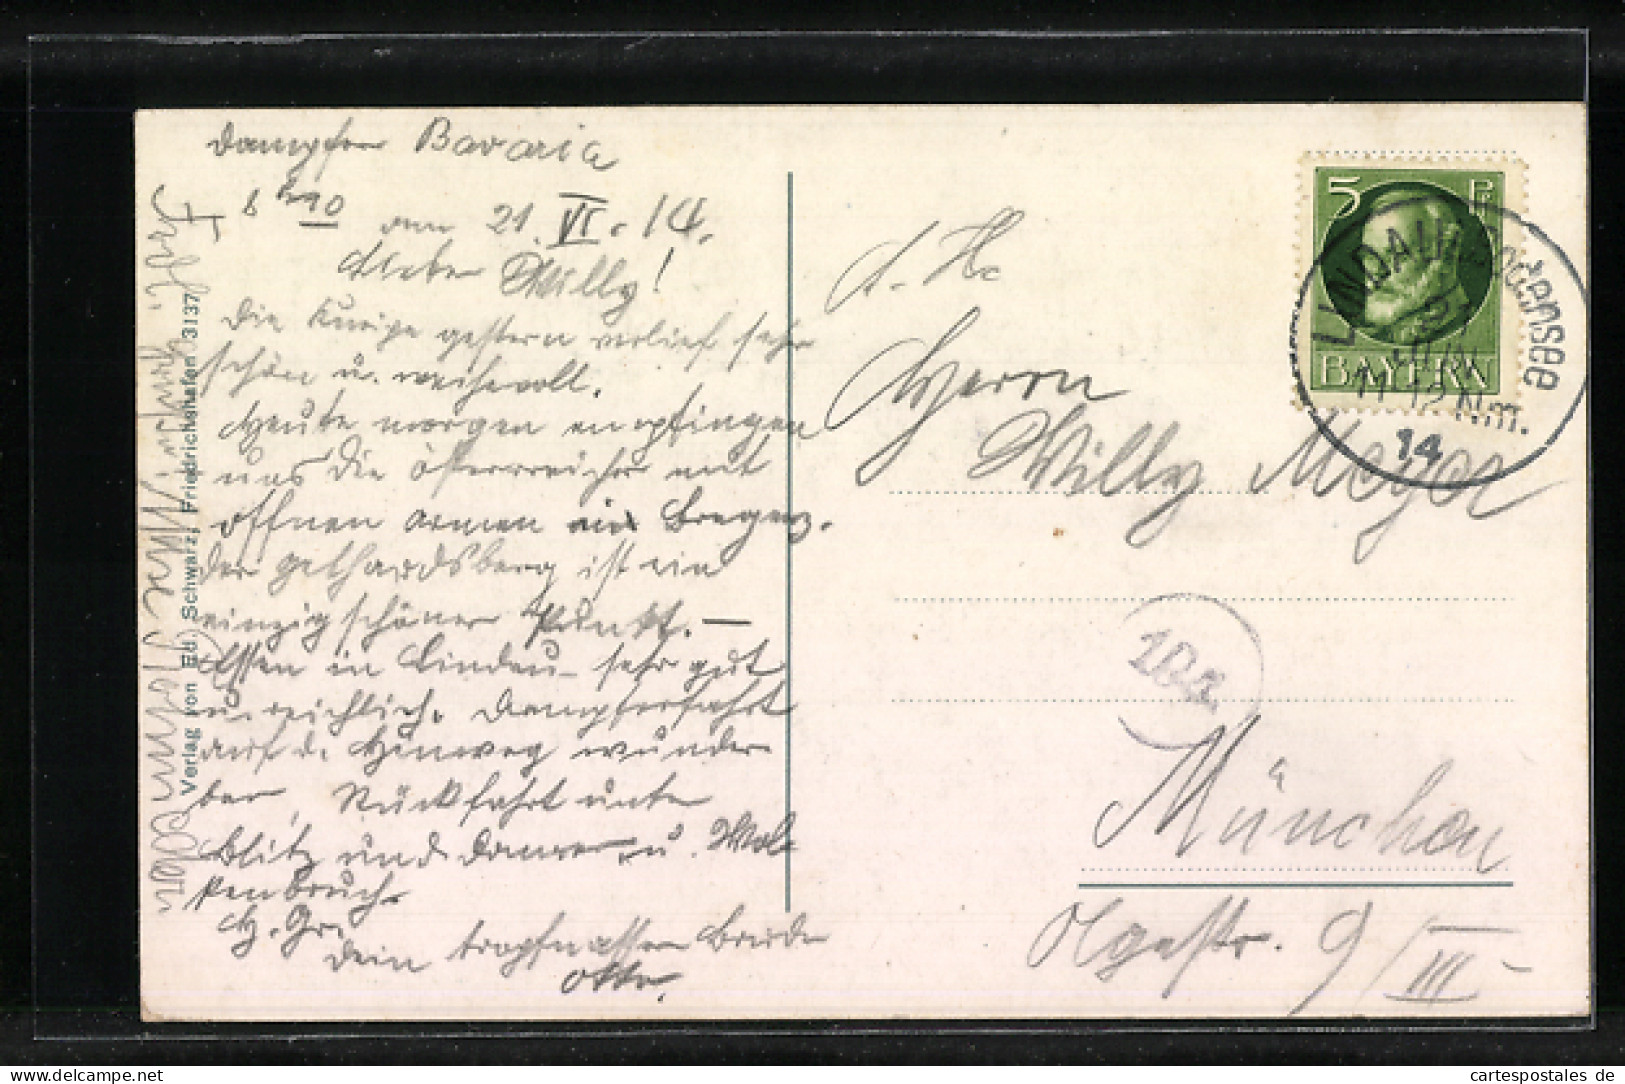 Dampfer Bavaria
6 h 10 am 21. VI. 14.
Lieber Willy!
Die Kneipe gestern verlief sehr
schön u. weihevoll.
Heute morgen empfingen
uns die Österreicher mit
offnen Armen in Bregenz.
Der Gebhardsberg ist ein
einzig schöner Punkt. —
Essen in Lindau sehr gut
u. reichlich. Dampferfahrt
auf d. Hinweg wunder
bar, Rückfahrt unter
Blitz und Donner u. Wol
kenbruch.
H. Gr.
Dein tropfnasser Bruder
Otto.
Verlag von Ed. Schwarz, Friedrichshafen 3137
5 Pf
BAYERN
LINDAU i. Bodensee
21
JUN.
11-12 Nm.
14
S. H.
Herrn
Willy Meyer
München
Olgastr. 9/III